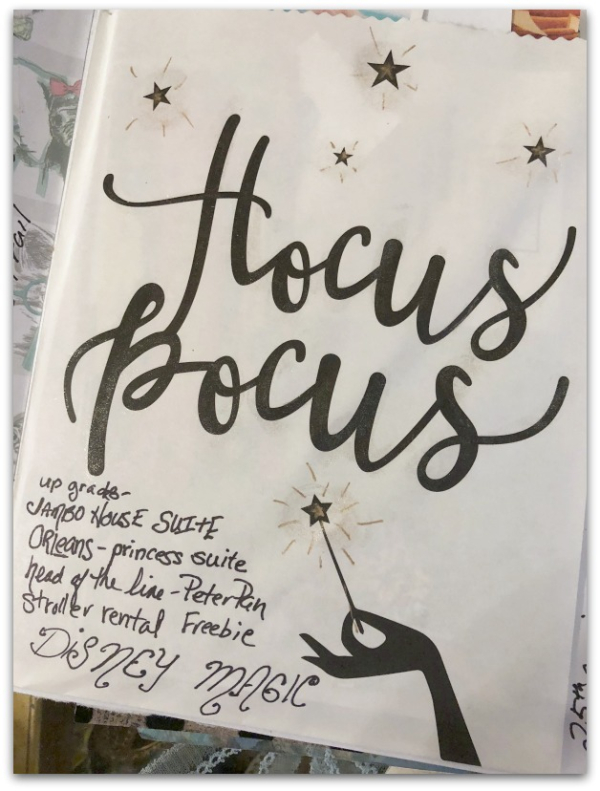 Hocus
Pocus
up grade-
JAMBO HOUSE SUITE
ORLEANS - princess suite
head of the line - Peter Pan
stroller rental Freebie
DISNEY MAGIC
25th